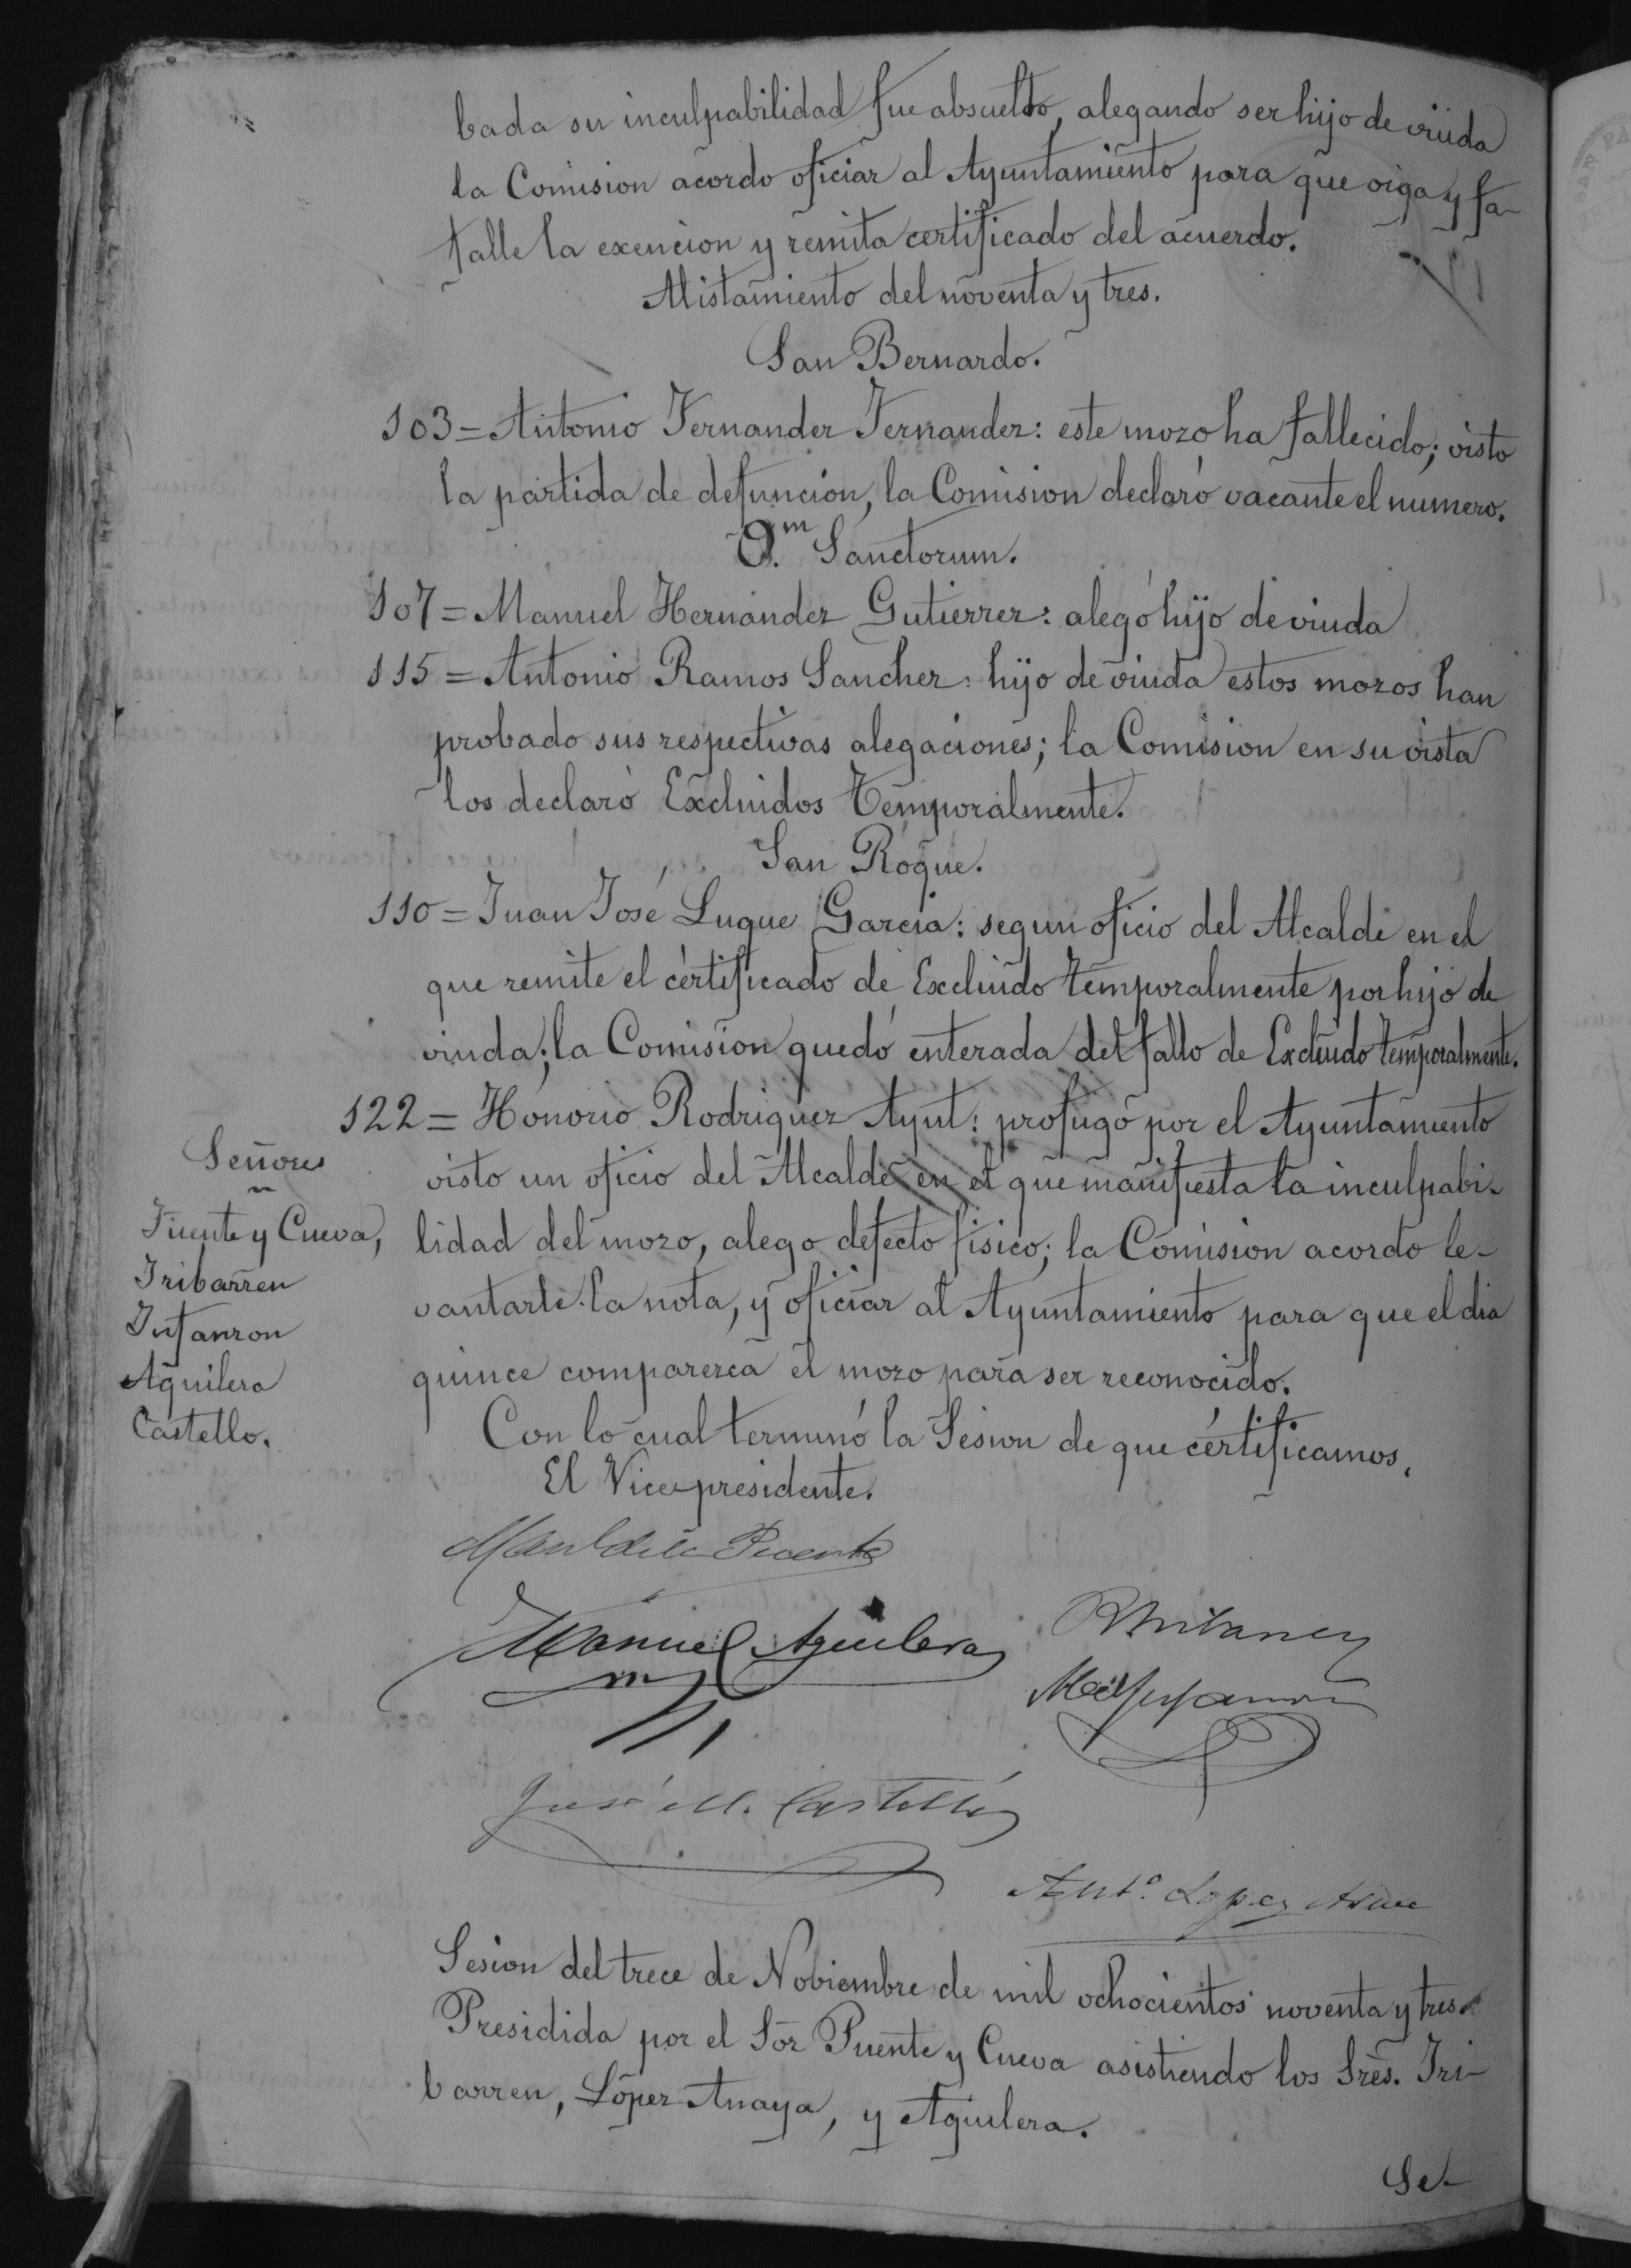 bada su inculpabilidad fue absuelto, alegando ser hijo de viuda
la Comision acordo oficiar al Ayuntamiento para que oiga y fa-
falle la exencion y remita certificado del acuerdo.
Alistamiento del noventa y tres.
San Bernardo.
103= Antonio Fernandez Fernandez: este mozo ha fallecido; visto
la partida de defuncion, la Comision declaró vacante el numero.
O.m Sanctorum.
107= Manuel Hernandez Gutierrez: alegó hijo de viuda
115= Antonio Ramos Sanchez: hijo de viuda estos mozos han
probado sus respectivas alegaciones; la Comision en su vista
los declaró Excluidos Temporalmente.
San Roque.
110= Juan José Luque Garcia: segun oficio del Alcalde en el
que remite el certificado de Excluido temporalmente por hijo de
viuda; la Comision quedó enterada del fallo de Excluido temporalmente.
122= Honorio Rodriguez Ayut: profugo por el Ayuntamiento
visto un oficio del Alcalde en el que manifiesta la inculpabi-
lidad del mozo, alego defecto fisico; la Comision acordo le-
vantarle la nota, y oficiar al Ayuntamiento para que el dia
quince comparezca el mozo para ser reconocido.
Con lo cual terminó la Sesion de que certificamos.
El Vicepresidente.
Señores
Fuente y Cueva,
Iribarren
Infanzon
Aguilera
Castello.
Manl de la Puente
Manuel Aguilera
R Iribarren
Ml Infanzon
José M. Castelló
Anto. Lopez
Sesion del trece de Nobiembre de mil ochocientos noventa y tres.
Presidida por el Sor Puente y Cueva asistiendo los Sres. Iri-
barren, López Anaya, y Aguilera.
Se-